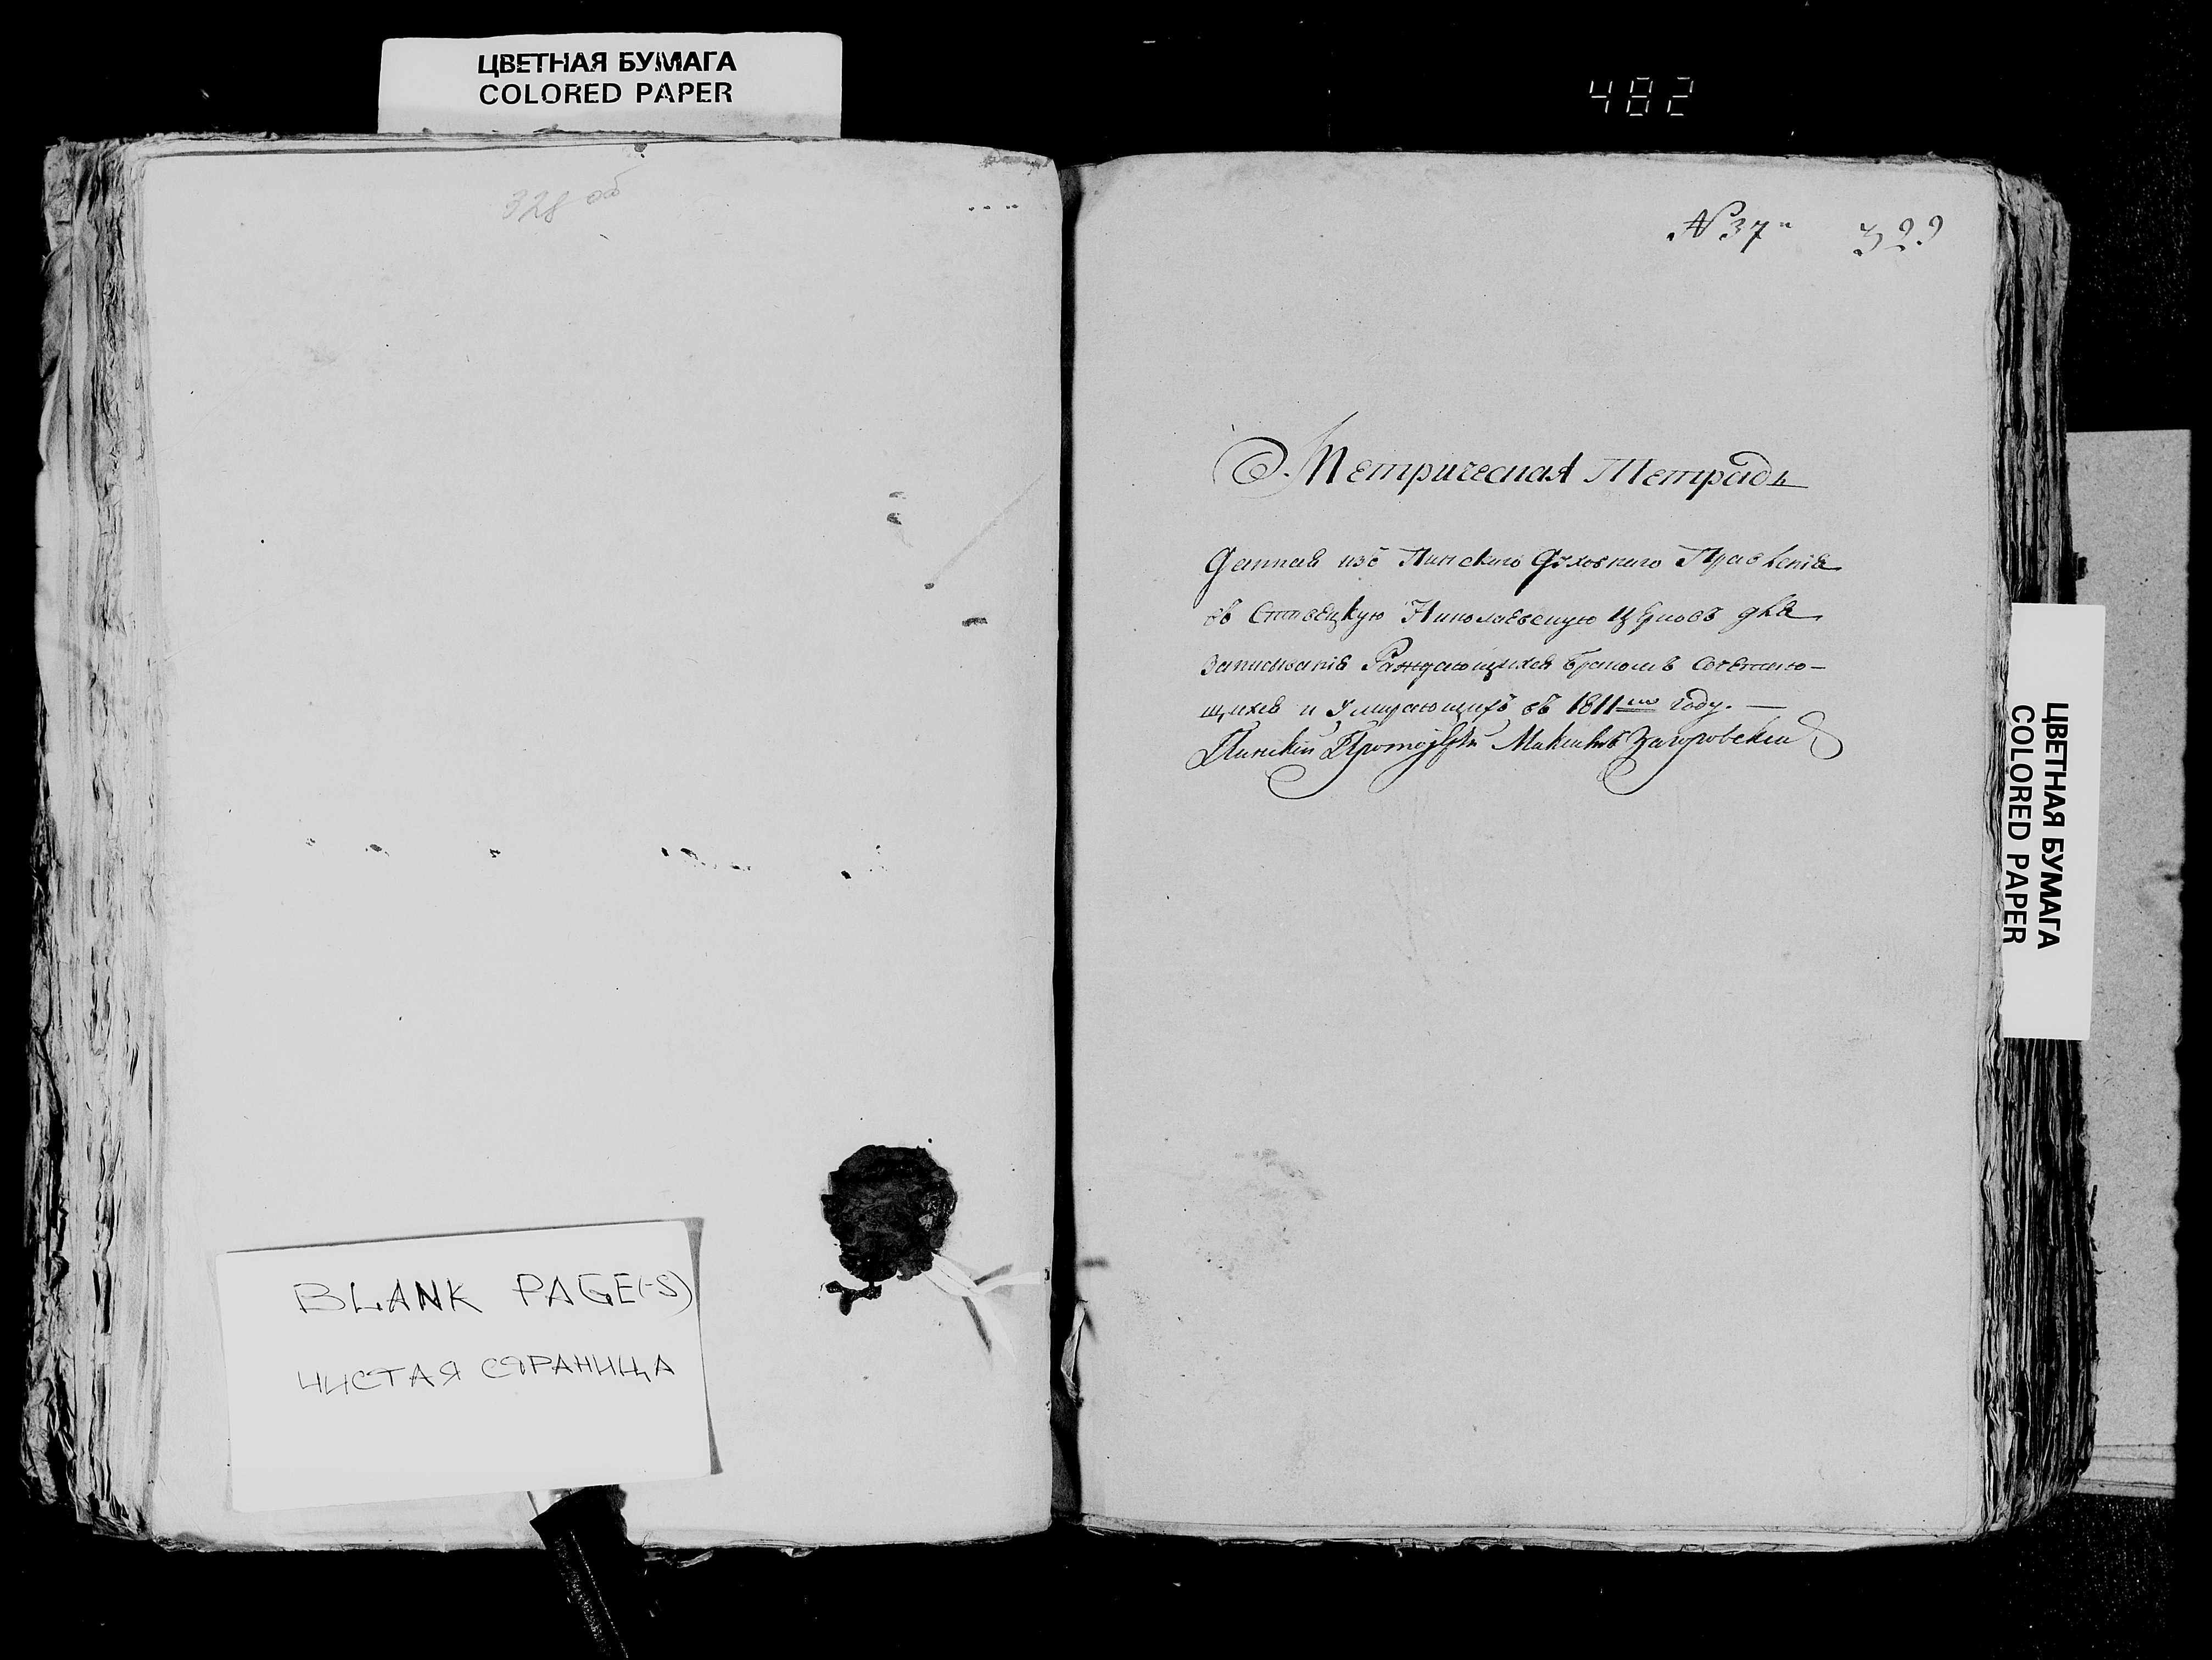 ЦВЕТНАЯ БУМАГА
COLORED PAPER
482
328 об
№ 37 329
Метрическая Тетрадь
Данная изъ Пинскаго Духовнаго Правленія
въ Ставецкую Николаевскую Церковь для
записыванія Раждающихся бракомъ Сочетаю-
щихся и Умирающихъ въ 1811мъ году.
Пинскій Протоіерей Загоровскій
BLANK PAGE(-S)
ЧИСТАЯ СТРАНИЦА
ЦВЕТНАЯ БУМАГА
COLORED PAPER